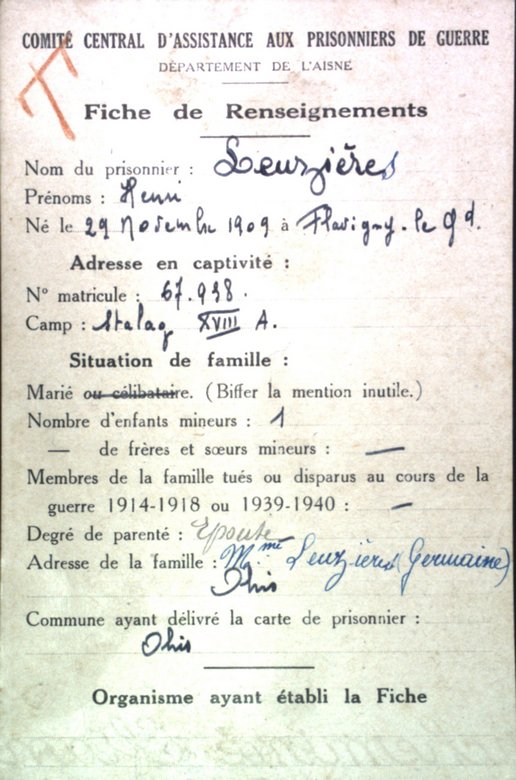 COMITÉ CENTRAL D'ASSISTANCE AUX PRISONNIERS DE GUERRE
DÉPARTEMENT DE L'AISNE
Fiche de Renseignements
Nom du prisonnier : Leuzières
Prénoms : Henri
Né le 29 Novembre 1909 à Flavigny-le Gd.
Adresse en captivité :
N° matricule : 67.938.
Camp : Stalag XVIII A.
Situation de famille :
Marié ou célibataire. (Biffer la mention inutile.)
Nombre d'enfants mineurs : 1
— de frères et sœurs mineurs : —
Membres de la famille tués ou disparus au cours de la
guerre 1914-1918 ou 1939-1940 : —
Degré de parenté : Epouse
Adresse de la famille : Mme Leuzières (Germaine)
Ohis
Commune ayant délivré la carte de prisonnier :
Ohis
Organisme ayant établi la Fiche